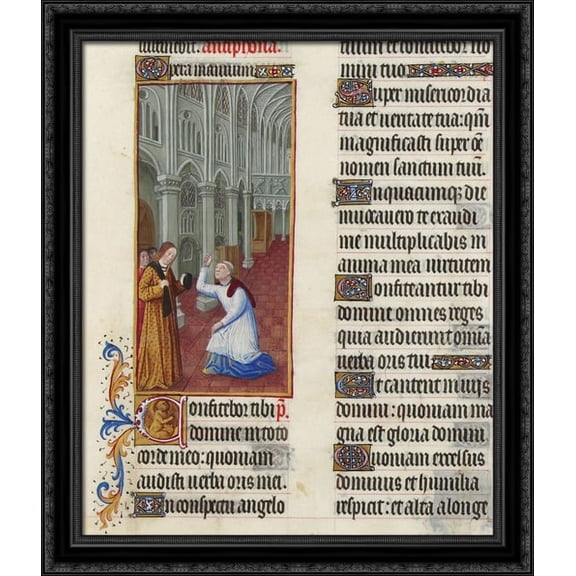 tuauerit. antiphona.
Opera manuum
Confitebor tibi p̄.
domine in toto
corde meo: quoniam
audisti uerba oris mei.
In conspectu angelo
tuum et confitebor no
mini tuo
Super misericordia
tua et ueritate tua: qm̄
magnificasti super oē
nomen sanctum tuū.
In quacumqz die
inuocauero te exaudi
me multiplicabis in
anima mea uirtutem
Confiteantur tibi
domine omnes reges
quia audierunt omīa
uerba oris tui
Et cantent in uijs
domini: quoniam ma
gna est gloria domini
Quoniam excelsus
dominus et humilia
respicit: et alta a longe